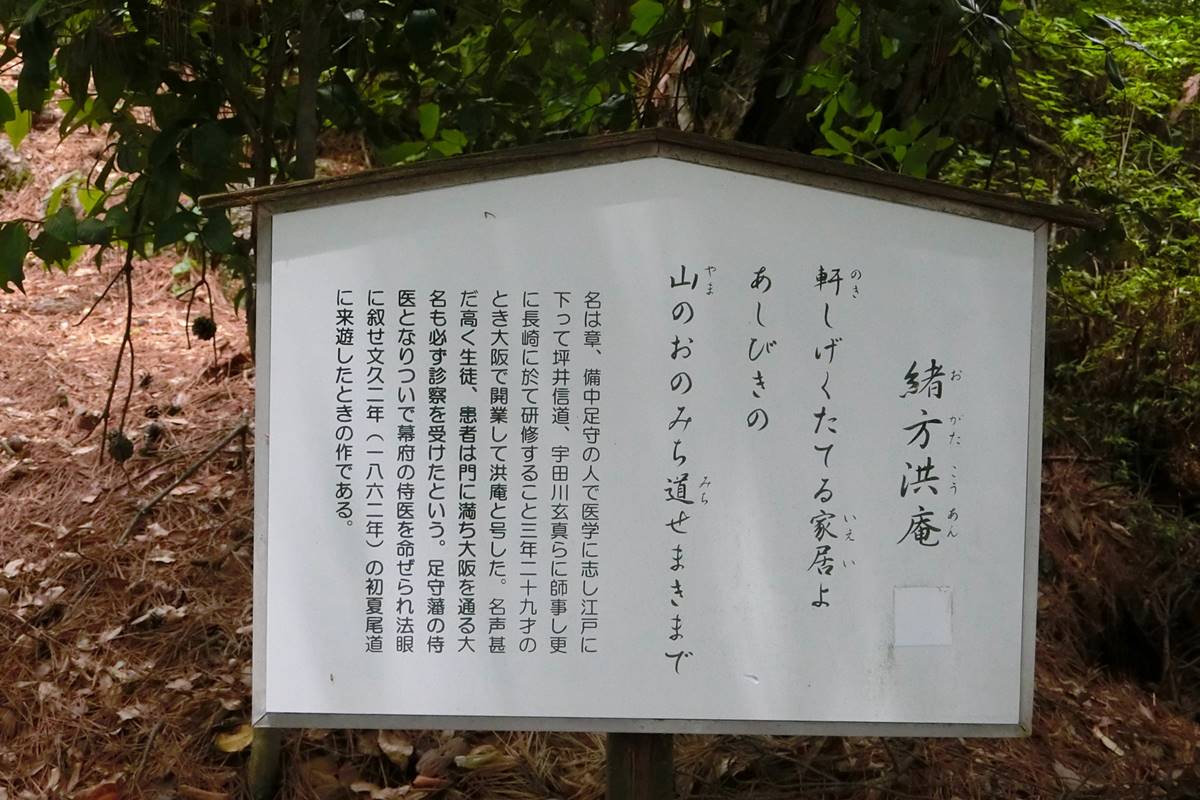 緒方洪庵
おがたこうあん
軒しげくたてる家居よ
のき
いえい
あしびきの
山のおのみち道せまきまで
やま
みち
名は章、備中足守の人で医学に志し江戸に
下って坪井信道、宇田川玄真らに師事し更
に長崎に於て研修すること三年二十九才の
とき大阪で開業して洪庵と号した。名声甚
だ高く生徒、患者は門に満ち大阪を通る大
名も必ず診察を受けたという。足守藩の侍
医となりついで幕府の侍医を命ぜられ法眼
に叙せ文久二年(一八六二年)の初夏尾道
に来遊したときの作である。